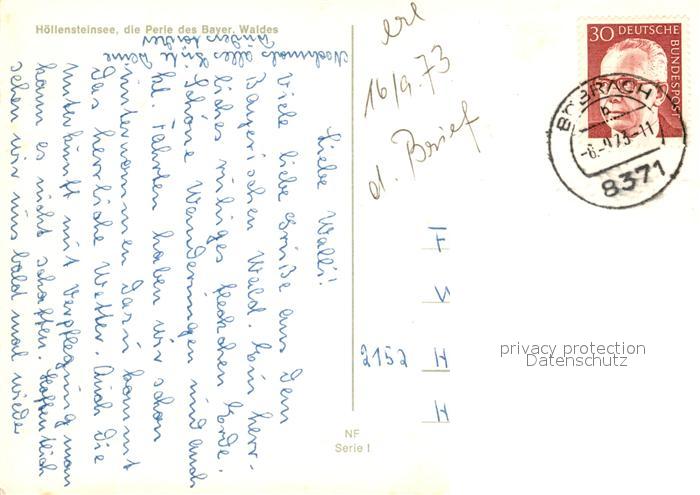 Höllensteinsee, die Perle des Bayer. Waldes
Liebe Walli!
Viele liebe Grüße aus dem
Bayerischen Wald. Ein herr-
liches ruhiges Fleckchen Erde.
Schöne Wanderungen und auch
Fahrten haben wir schon
unternommen. Dazu kommt
das herrliche Wetter. Auch die
Unterkunft mit Verpflegung man
kann es nicht schaffen. Hoffentlich
sehen wir uns bald mal wieder
Nochmals alles Gute Deine
erl
16/9.73
d. Brief
30 DEUTSCHE
BUNDESPOST
BÖBRACH
b
-6.-9.73-11
8371
F
V
2152 H
H
privacy protection
Datenschutz
NF
Serie I